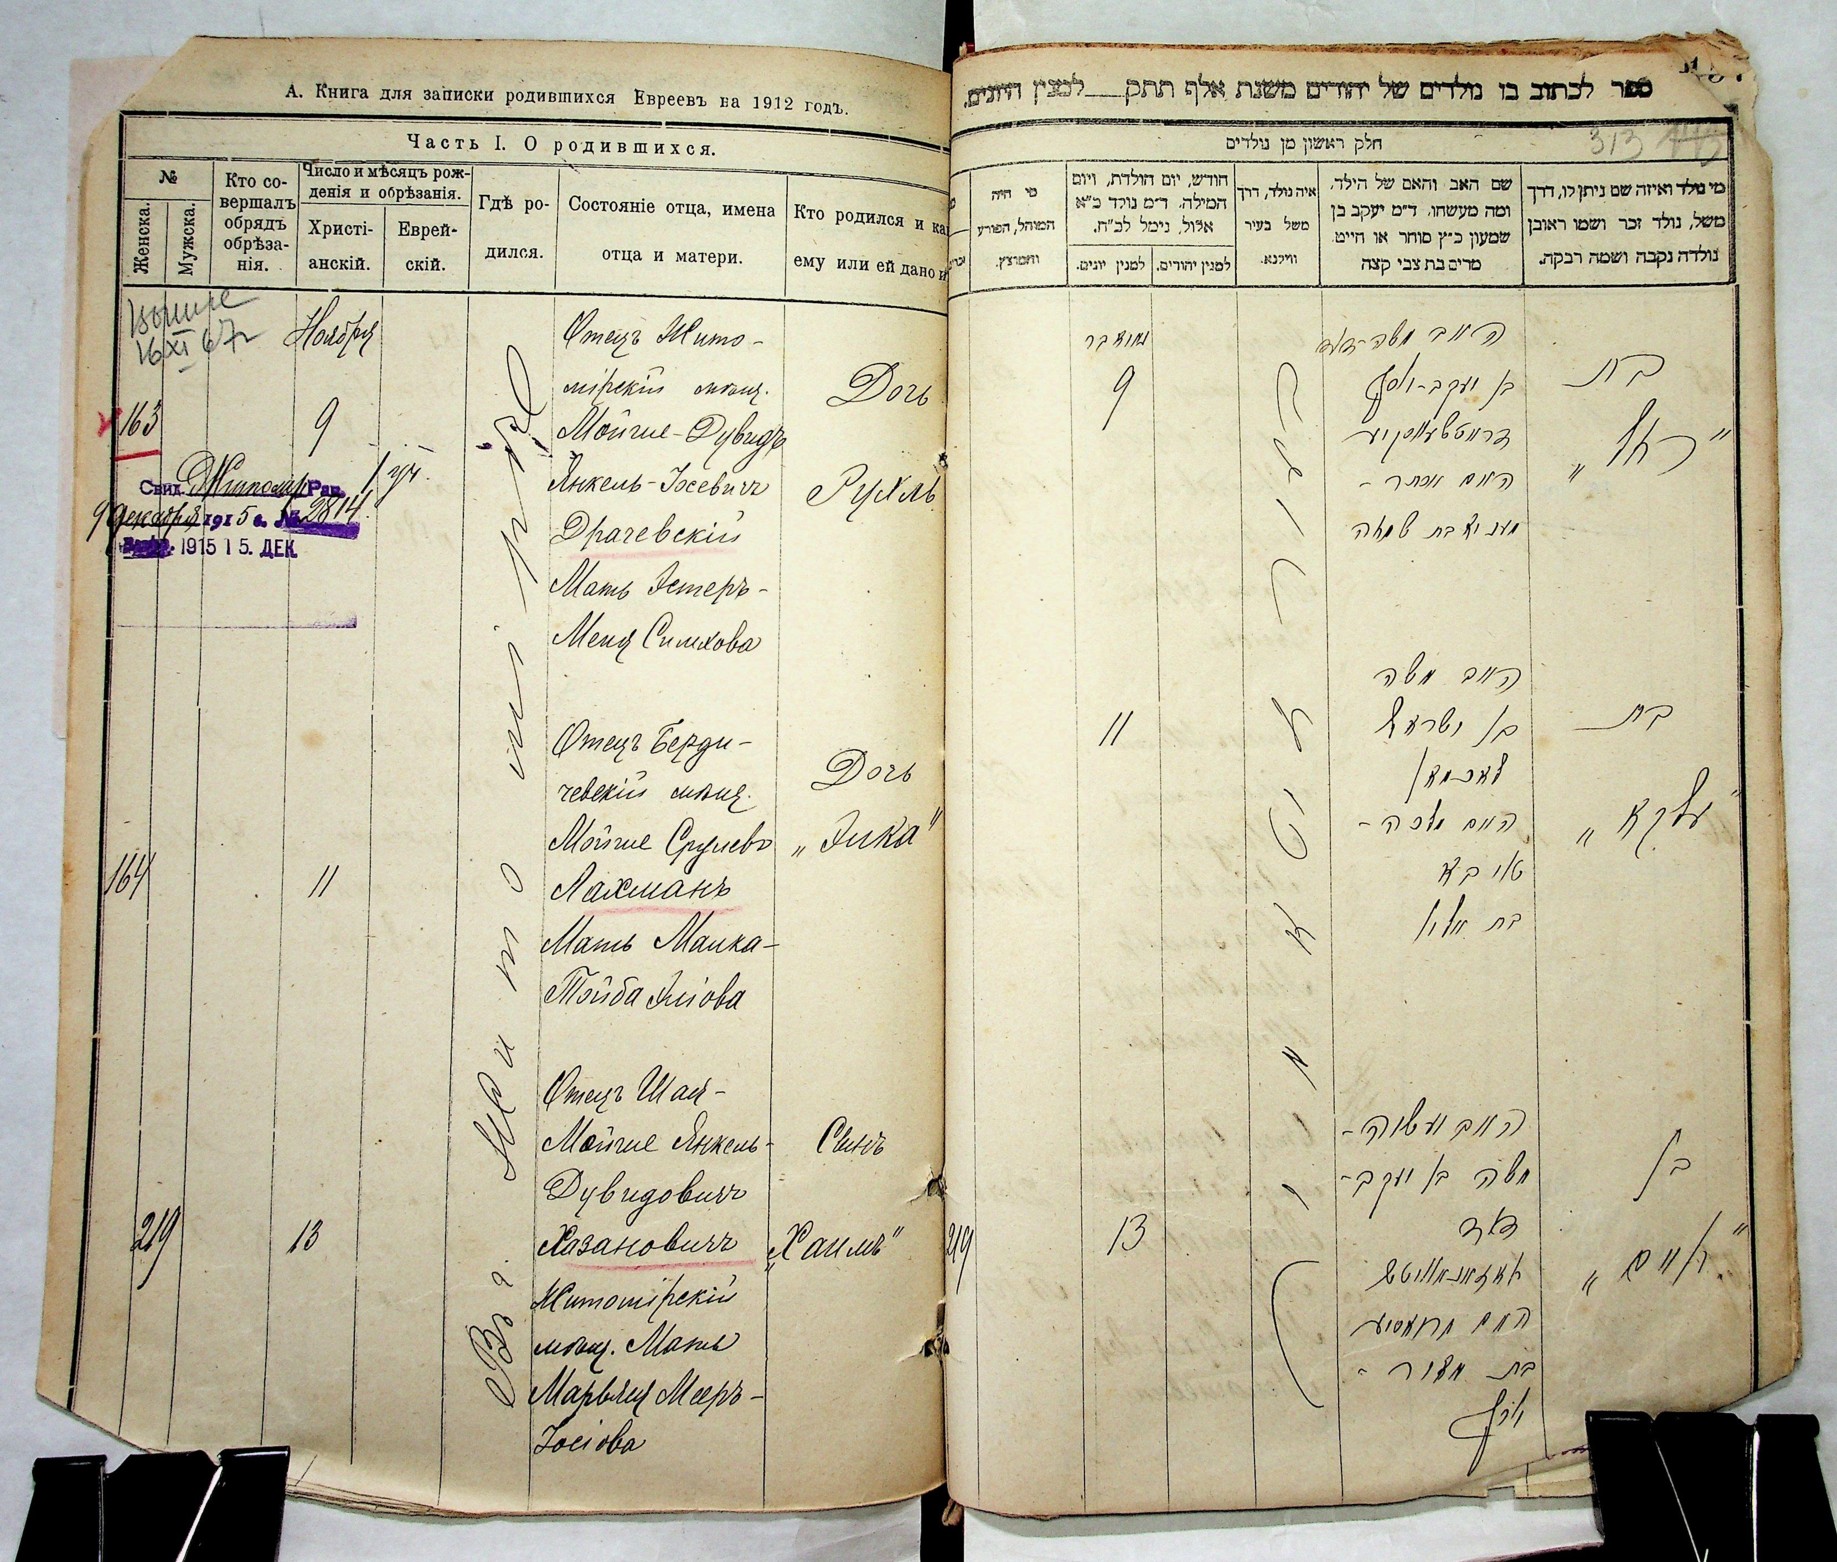 А. Книга для записки родившихся Евреевъ на 1912 годъ.
Часть I. О родившихся.
№
Женска.
Мужска.
Кто со-
вершалъ
обрядъ
обрѣза-
нія.
Число и мѣсяцъ рож-
денія и обрѣзанія.
Христі-
анскій.
Еврей-
скій.
Гдѣ ро-
дился.
Состояніе отца, имена
отца и матери.
Кто родился и ка
ему или ей дано и
16 XI 67
Ноября
163
9
Свид. Житомир Рав.
9 Декабря 1915 г. № 2814
1915 15. ДЕК
Въ г. Житомірѣ
Отецъ Жито-
мірскій мѣщ.
Мойше-Дувидъ
Янкель-Іосевичъ
Драчевскій
Мать Эстеръ-
Меня Симхова
Дочь
Рухль
164
11
Отецъ Берди-
чевскій мѣщ.
Мойше Срулевъ
Лахманъ
Мать Малка-
Тойба Эліова
Дочь
„Элка"
219
13
Отецъ Шая-
Мойше Янкель-
Дувидовичъ
Хазановичъ
Житомірскій
мѣщ. Мать
Марьяся Мееръ-
Іосіова
Сынъ
„Хаимъ"
ספר לכתוב בו נולדים של יהודים משנת אלף תתק למנין היונים.
313
חלק ראשון מן נולדים
מי נולד ואיזה שם ניתן לו, דרך
משל, נולד זכר ושמו ראובן
נולדה נקבה ושמה רבקה.
שם האב והאם של הילד,
ומה מעשהו. ד״מ יעקב בן
שמעון כ״ץ סוחר או חייט
מרים בת צבי קצה
איה נולד, דרך
משל בעיר
ווילנא.
חודש, יום הולדת, ויום
המילה. ד״מ נולד כ״א
אלול, נימל לכ״ח.
למנין יהודים.
למנין יונים.
מי היה
המוהל, הפורע
והמוצץ.
בת
„רחל"
האב משה-דוד
בן יעקב-יוסף
דראטשעווסקי
האם אסתר-
מעניא בת שמחה
נאיאבר
9
בת
„עלקא"
האב משה
בן ישראל
לאכמאן
האם מלכה-
טויבא
בת אליו
11
זיטאמיר
בן
„חיים"
האב ישעיה-
משה בן יעקב-
דוד
חאזאנאוויטש
האם מריאסיע
בת מאיר-
יוסף
13
219